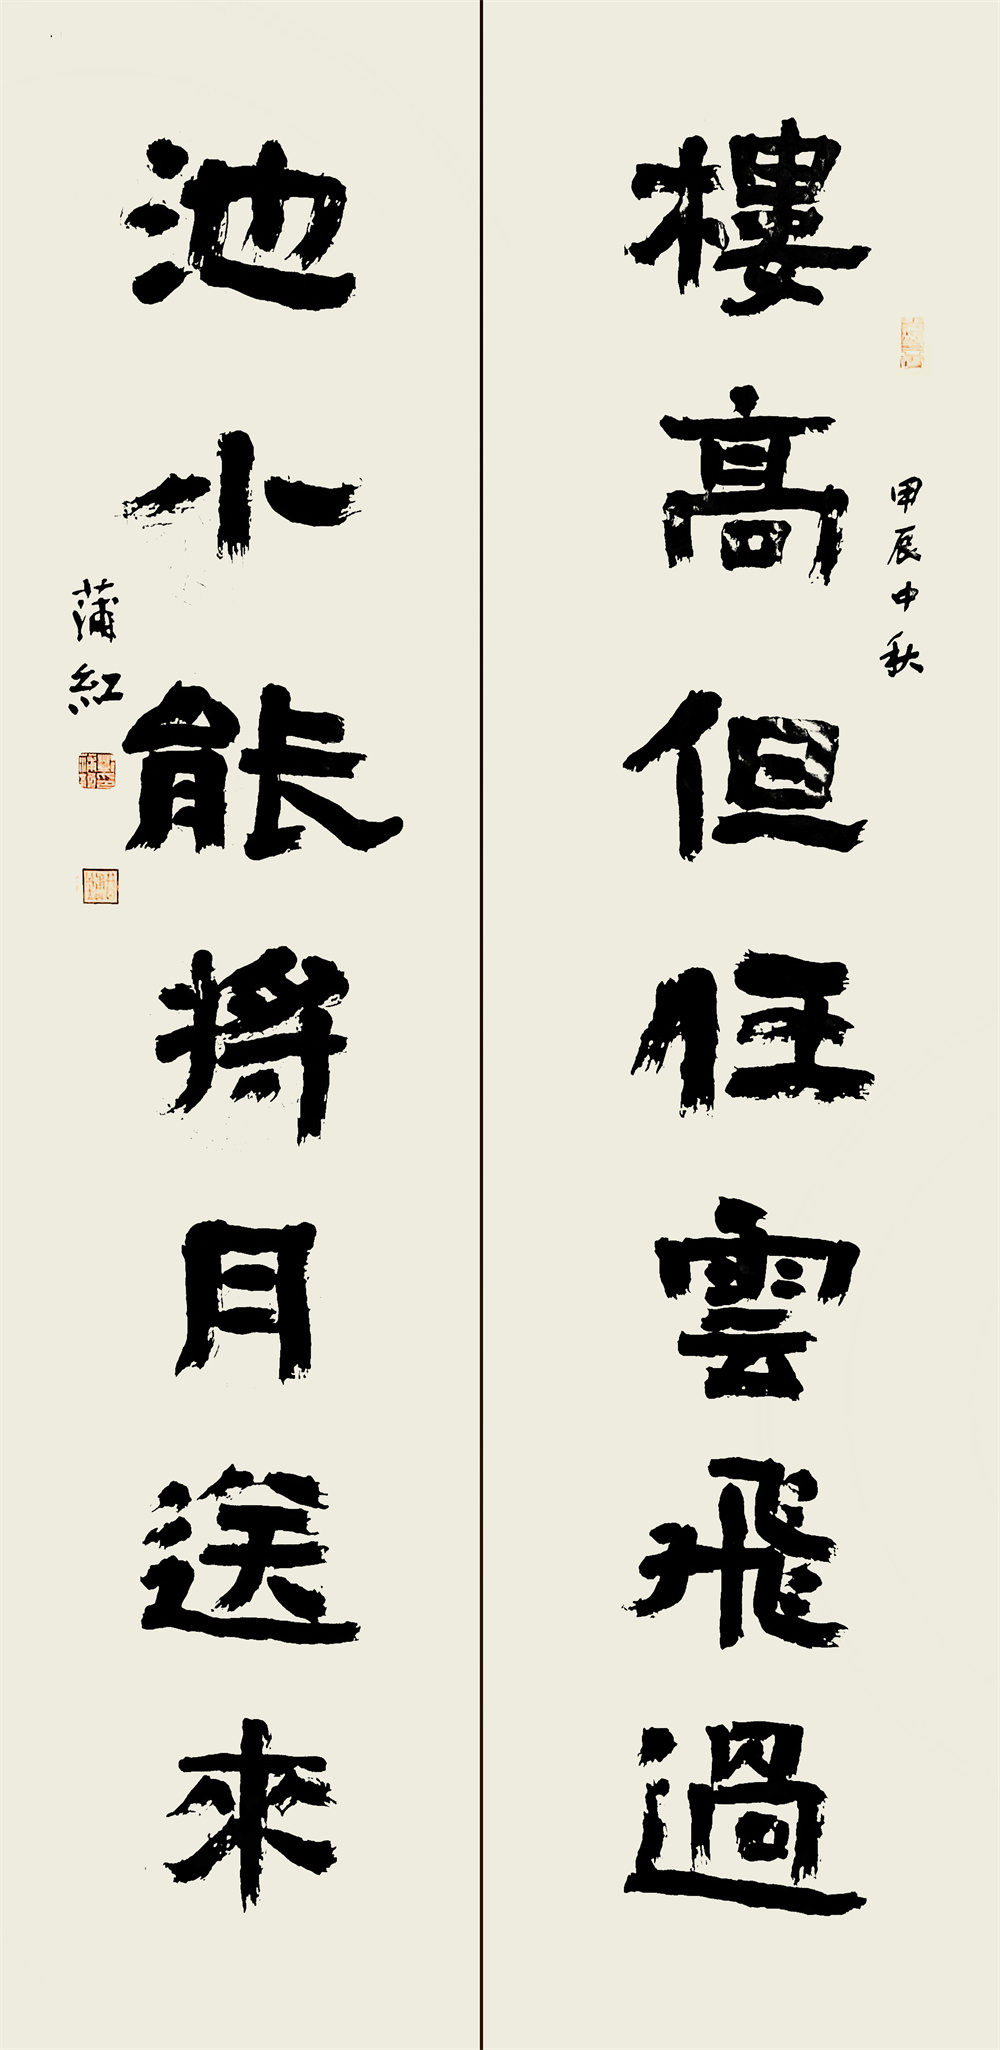 樓高但任雲飛過
甲辰中秋
池小能將月送來
蒲紅